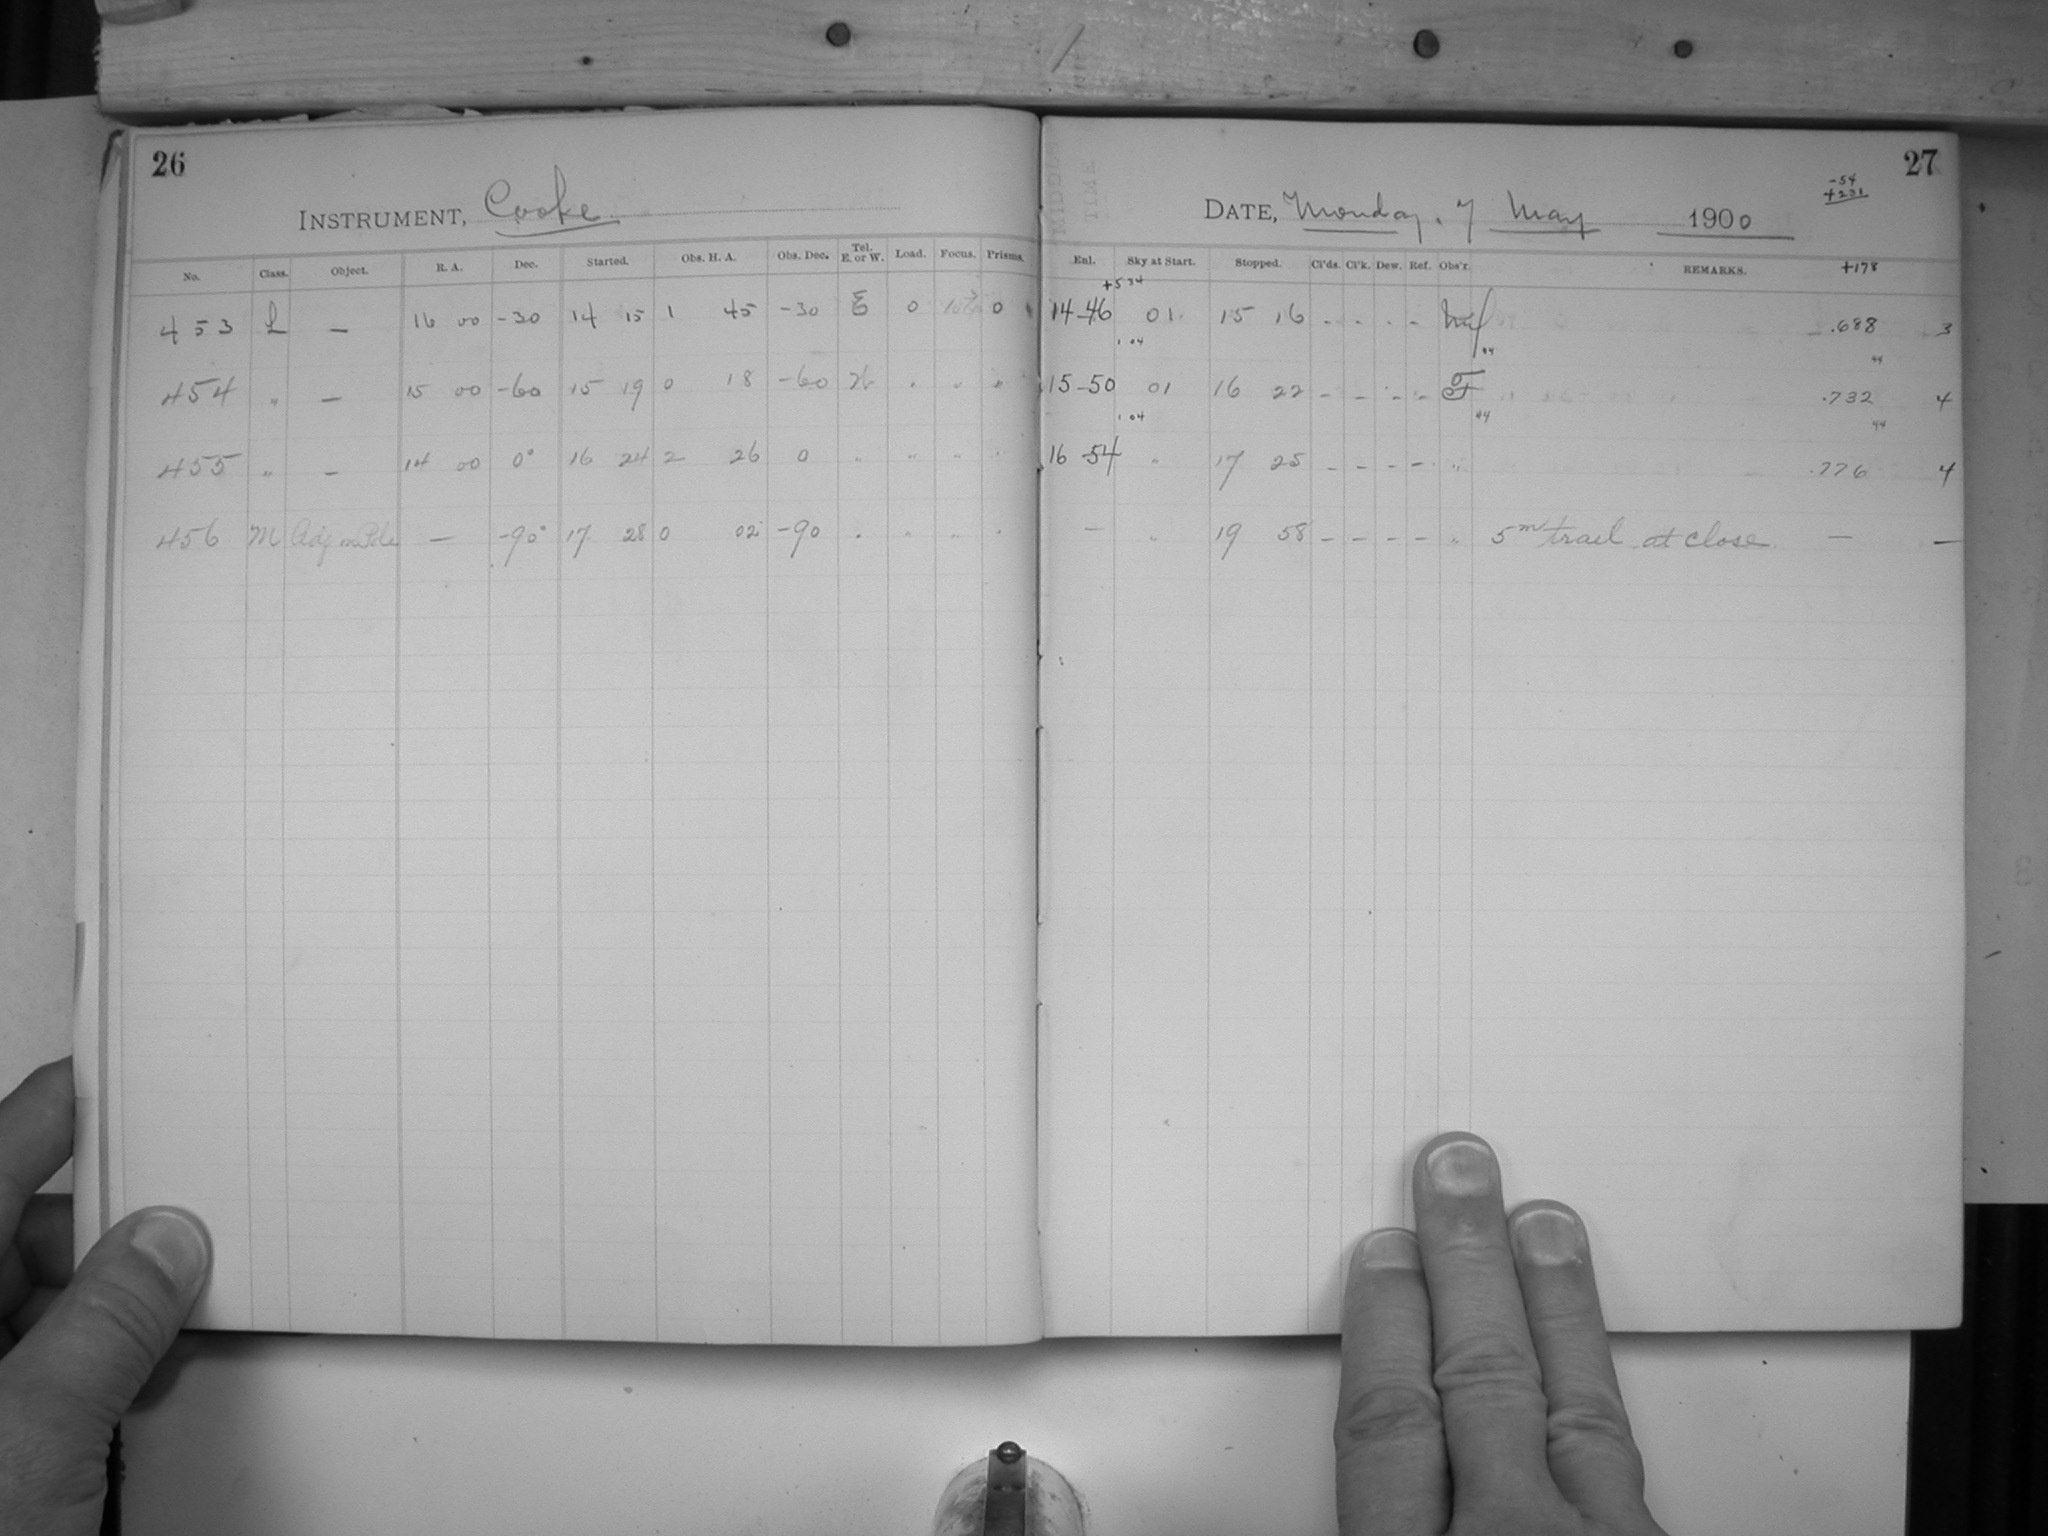 26
INSTRUMENT, Cooke
No. Class. Object. R. A. Dec. Started. Obs. H. A. Obs. Dec. Tel. E. or W. Load. Focus. Prisms.
453 L — 16 00 -30 14 15 1 45 -30 E 0 0
454 " — 15 00 -60 15 19 0 18 -60 " "
455 " — 14 00 0° 16 24 2 26 0 " " "
456 M Adj on Pole — -90° 17 28 0 02 -90 " "
27
-54
+231
DATE, Monday. 7 May 1900
Enl. Sky at Start. Stopped. Cl'ds. Cl'k. Dew. Ref. Obs'r. REMARKS. +178
+5 34
14-46 01 15 16 - - - - .688 3
1 04 44 44
15-50 01 16 22 - - - - .732 4
1 04 44 44
16-54 " 17 25 - - - - " .776 4
— " 19 58 - - - - " 5m trail at close — —